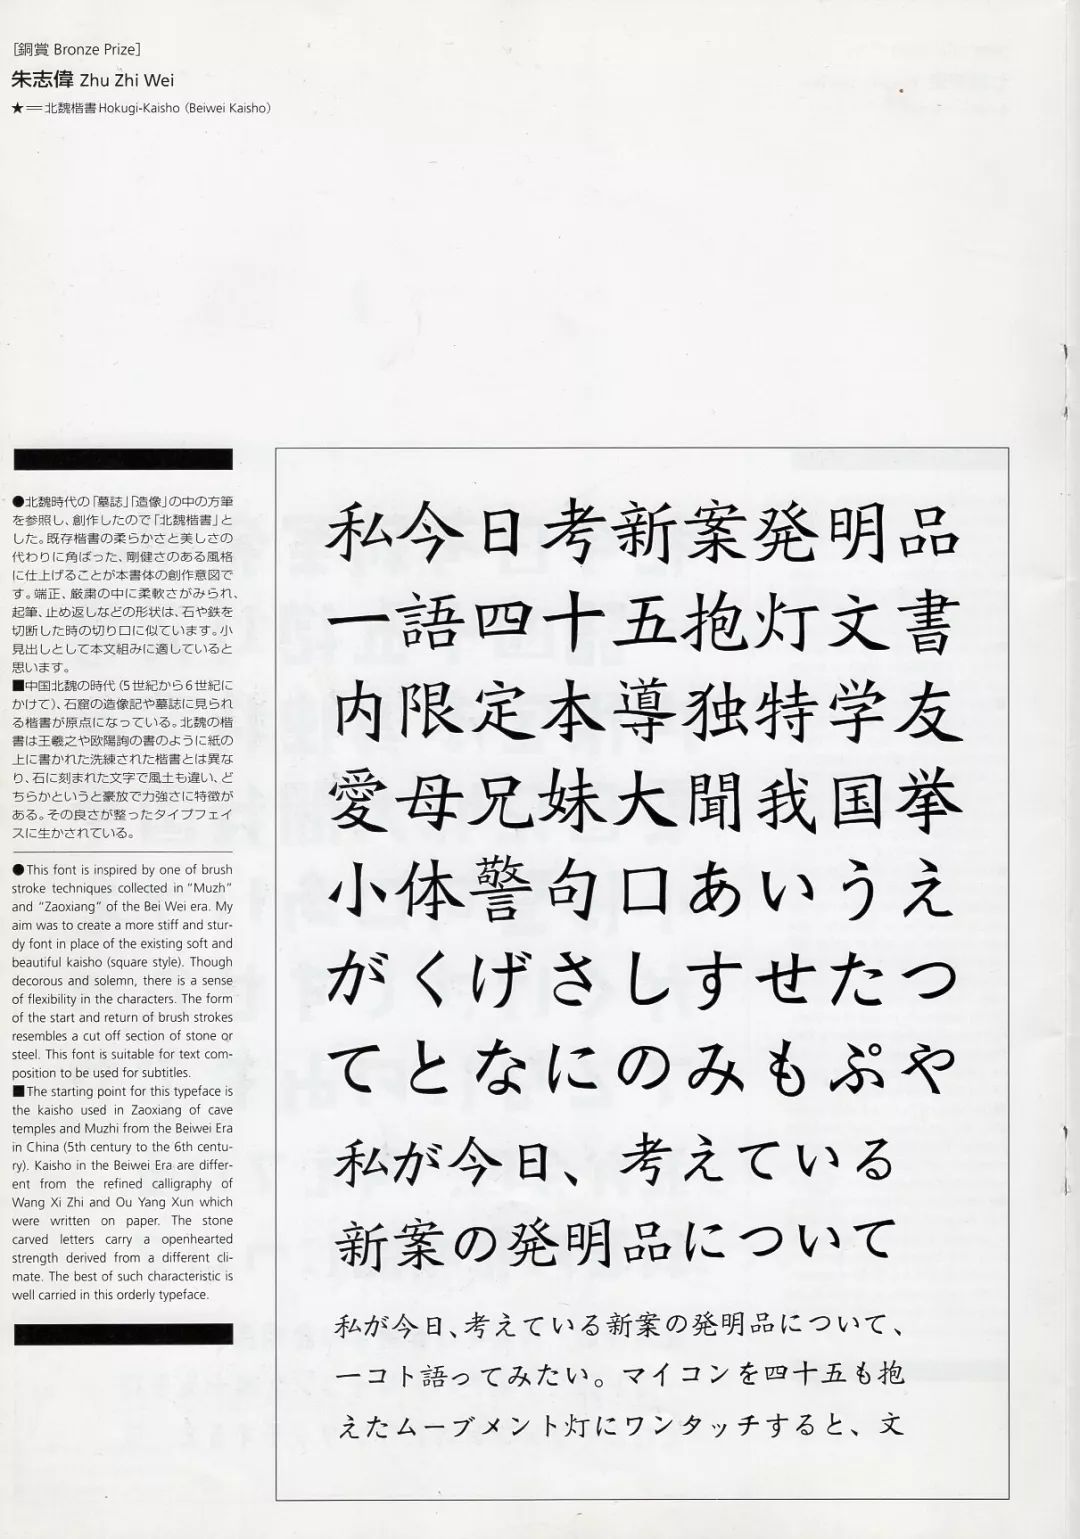 [銅賞 Bronze Prize]
朱志偉 Zhu Zhi Wei
★＝北魏楷書 Hokugi-Kaisho (Beiwei Kaisho)
●北魏時代の「墓誌」「造像」の中の方筆
を参照し、創作したので「北魏楷書」と
した。既存楷書の柔らかさと美しさの
代わりに角ばった、剛健さのある風格
に仕上げることが本書体の創作意図で
す。端正、厳粛の中に柔軟さがみられ、
起筆、止め返しなどの形状は、石や鉄を
切断した時の切り口に似ています。小
見出しとして本文組みに適していると
思います。
■中国北魏の時代（5世紀から6世紀に
かけて）、石窟の造像記や墓誌に見られ
る楷書が原点になっている。北魏の楷
書は王羲之や欧陽詢の書のように紙の
上に書かれた洗練された楷書とは異な
り、石に刻まれた文字で風土も違い、ど
ちらかというと豪放で力強さに特徴が
ある。その良さが整ったタイプフェイ
スに生かされている。
●This font is inspired by one of brush
stroke techniques collected in "Muzh"
and "Zaoxiang" of the Bei Wei era. My
aim was to create a more stiff and stur-
dy font in place of the existing soft and
beautiful kaisho (square style). Though
decorous and solemn, there is a sense
of flexibility in the characters. The form
of the start and return of brush strokes
resembles a cut off section of stone or
steel. This font is suitable for text com-
position to be used for subtitles.
■The starting point for this typeface is
the kaisho used in Zaoxiang of cave
temples and Muzhi from the Beiwei Era
in China (5th century to the 6th centu-
ry). Kaisho in the Beiwei Era are differ-
ent from the refined calligraphy of
Wang Xi Zhi and Ou Yang Xun which
were written on paper. The stone
carved letters carry a openhearted
strength derived from a different cli-
mate. The best of such characteristic is
well carried in this orderly typeface.
私今日考新案発明品
一語四十五抱灯文書
内限定本導独特学友
愛母兄妹大聞我国挙
小体警句口あいうえ
がくげさしすせたつ
てとなにのみもぷや
私が今日、考えている
新案の発明品について
私が今日、考えている新案の発明品について、
一コト語ってみたい。マイコンを四十五も抱
えたムーブメント灯にワンタッチすると、文